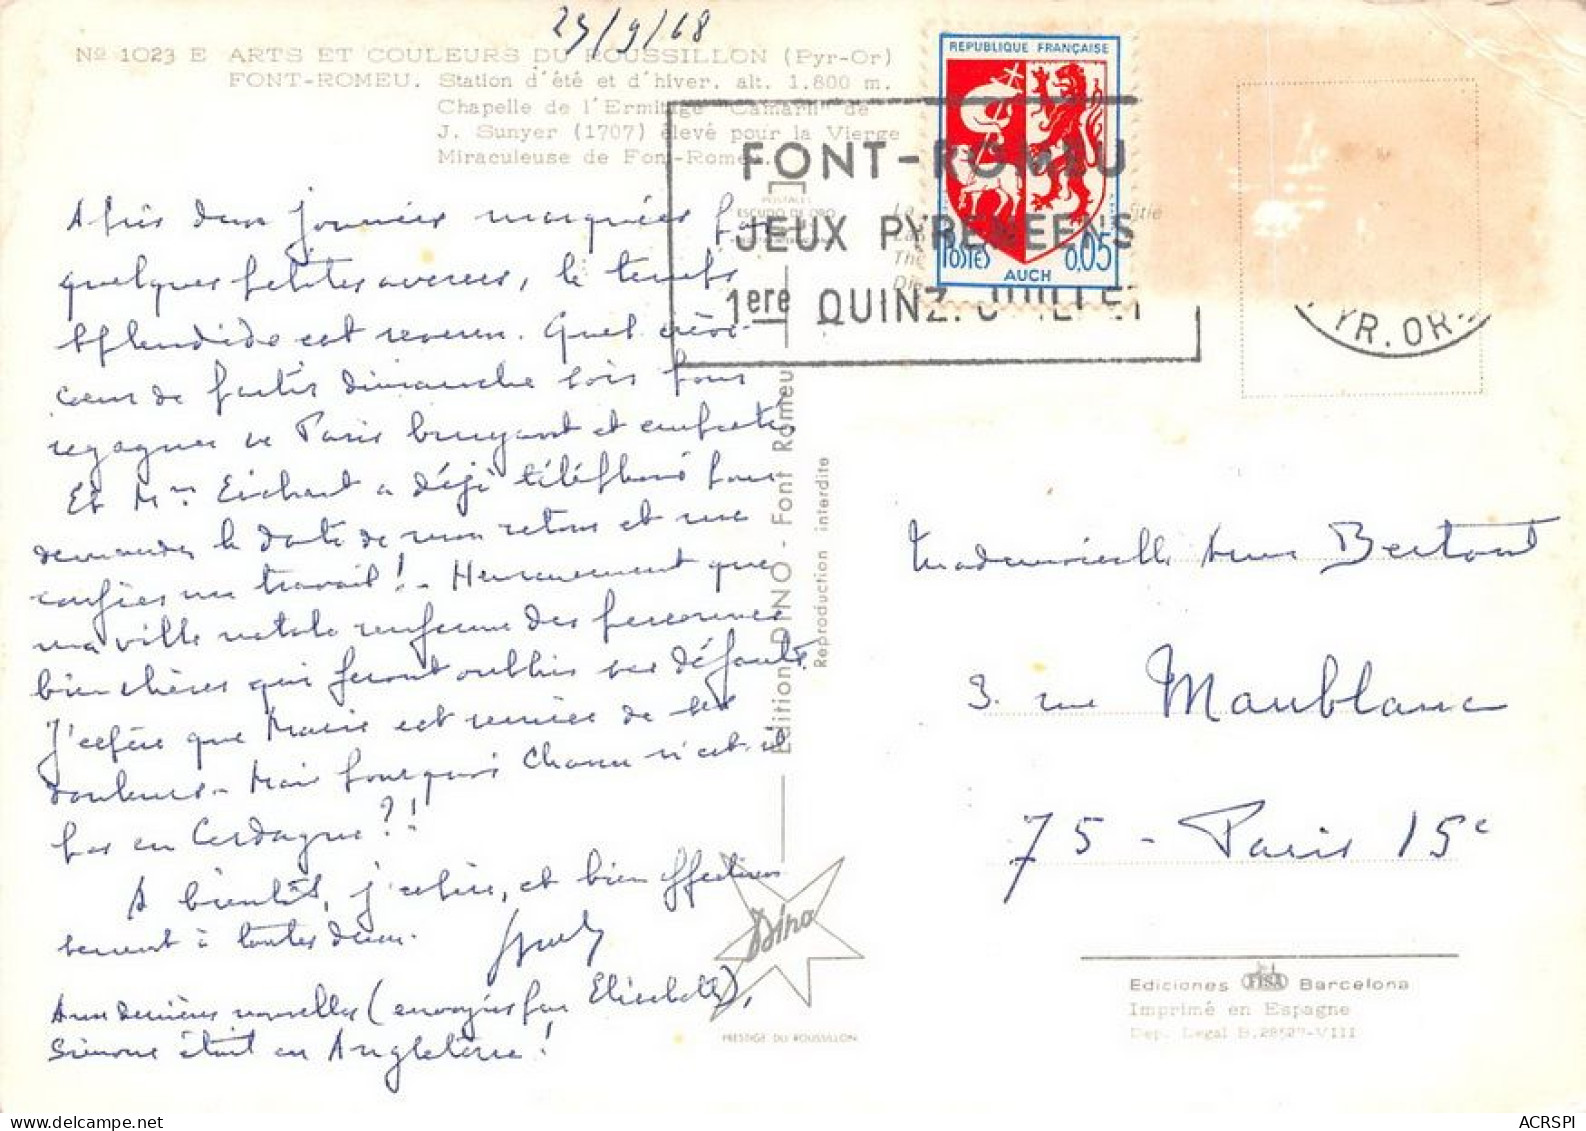 25/9/68
Nº 1023 E ARTS ET COULEURS DU ROUSSILLON (Pyr-Or)
FONT-ROMEU. Station d'été et d'hiver. alt. 1.800 m.
Chapelle de l'Ermitage "Camaril" de
J. Sunyer (1707) élevé pour la Vierge
Miraculeuse de Font-Romeu.
Après deux journées marquées par
quelques petites averses, le temps
splendide est revenu. Quel crève-
cœur de partir dimanche soir pour
regagner ce Paris bruyant et empesté.
Et Mme a déjà téléphoné pour
demander la date de mon retour et me
confier un travail! - Heureusement que
ma ville natale renferme des personnes
bien chères qui feront oublier ses défauts.
J'espère que Marie est remise de ses
douleurs - Mais pourquoi n'est-il
pas en Cerdagne?!
A bientôt, j'espère, et bien affectueu
sement à toutes deux.
Aux dernières nouvelles (envoyées par Elisabeth),
Simone était en Angleterre!
REPUBLIQUE FRANÇAISE
POSTES 0,05
AUCH
FONT-ROMEU
JEUX PYRENEENS
1ere QUINZ. JUILLET
PYR. OR.
POSTALES
ESCUDO DE ORO
Edition DINO - Font Romeu
Reproduction interdite
Dino
PRESTIGE DU ROUSSILLON
Mademoiselle Bertout
3. rue Maublanc
75 - Paris 15e
Ediciones FISA Barcelona
Imprimé en Espagne
Dep. Legal B. 28527-VIII
ACRSPI